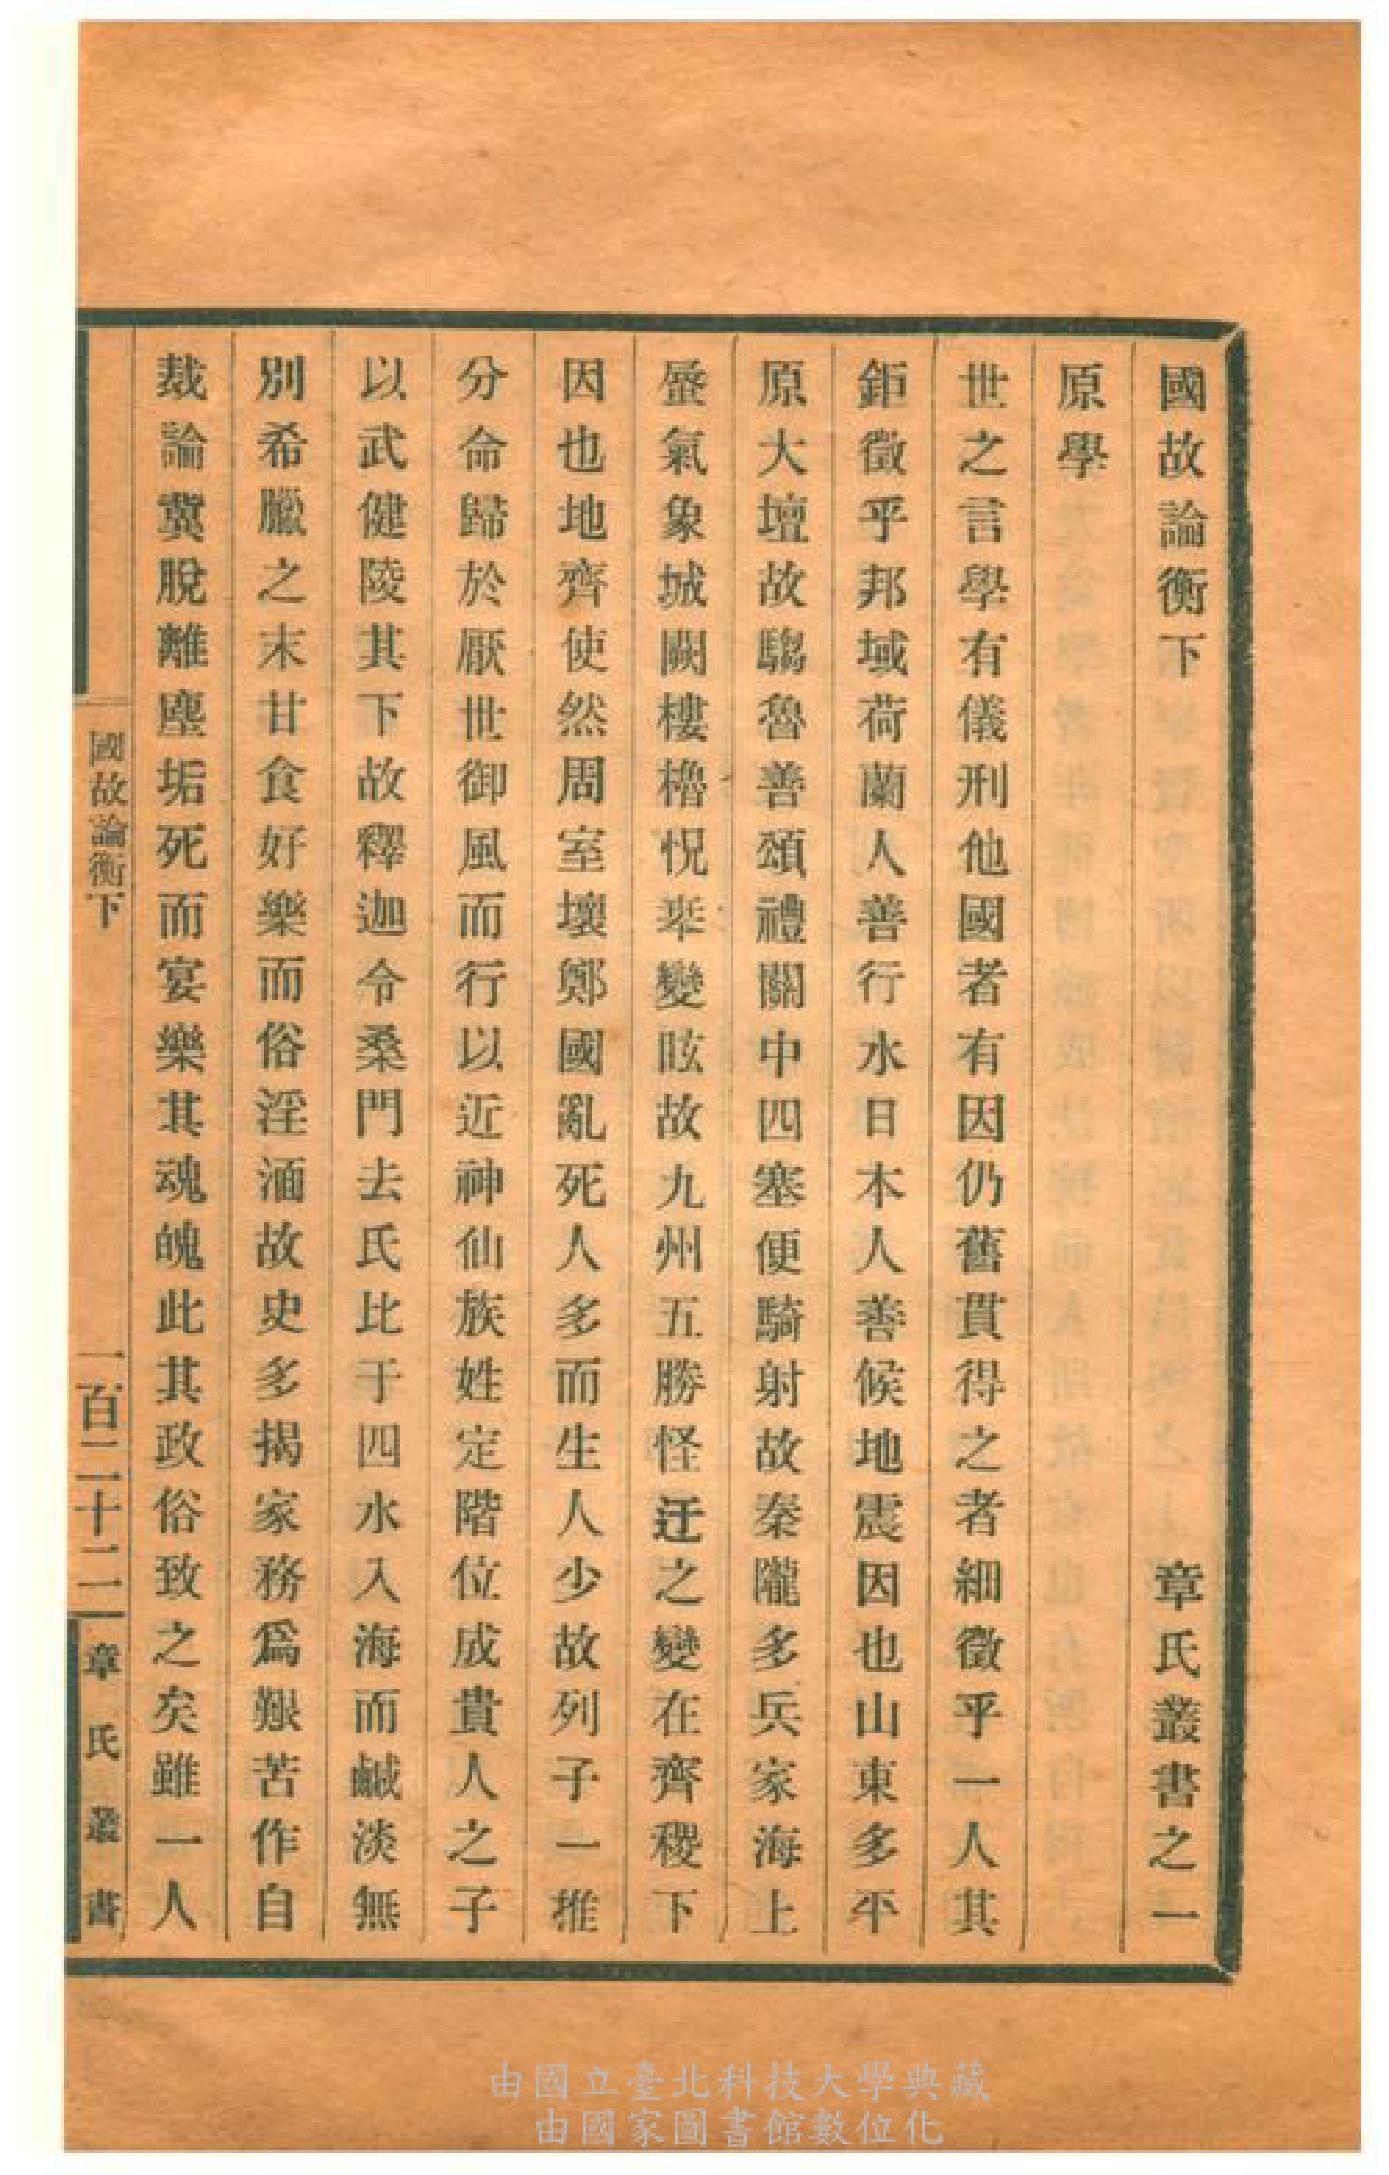 國故論衡下　章氏叢書之一
原學
世之言學有儀刑他國者有因仍舊貫得之者細徵乎一人其
鉅徵乎邦域荷蘭人善行水日木人善候地震因也山東多平
原大壇故騶魯善頌禮關中四塞便騎射故秦隴多兵家海上
蜃氣象城闕樓櫓怳𠦪變眩故九州五勝怪迂之變在齊稷下
因也地齊使然周室壞鄭國亂死人多而生人少故列子一推
分命歸於厭世御風而行以近神仙族姓定階位成貴人之子
以武健陵其下故釋迦令桑門去氏比于四水入海而鹹淡無
別希臘之末甘食好樂而俗淫湎故史多揭家務爲艱苦作自
裁論冀脫離塵垢死而宴樂其魂魄此其政俗致之矣雖一人
國故論衡下
一百二十二
章氏叢書
由國立臺北科技大學典藏
由國家圖書館數位化